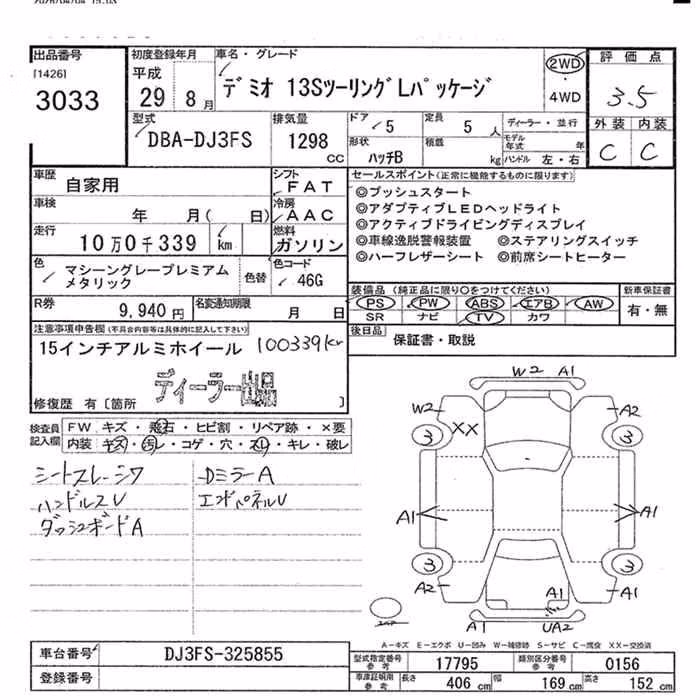 出品番号
[1426]
3033
初度登録年月
平成
29年 8月
車名・グレード
デミオ 13Sツーリング Lパッケージ
2WD
・
4WD
評価点
3.5
外装 内装
C C
型式
DBA-DJ3FS
排気量
1298
CC
ドア
5
定員
5 人
形状
ハッチB
積載
kg
ディーラー・並行
モデル年式 年
ハンドル 左・右
車歴
自家用
シフト
FAT
車検
年 月( 日)
冷房
AAC
走行
10万0千339
km
燃料
ガソリン
色
マシーングレープレミアム
メタリック
色替
色コード
46G
R券
9,940円
名変通知期限
月 日
セールスポイント(正常に機能するものに限ります)
◎プッシュスタート
◎アダプティブLEDヘッドライト
◎アクティブドライビングディスプレイ
◎車線逸脱警報装置 ◎ステアリングスイッチ
◎ハーフレザーシート ◎前席シートヒーター
装備品(純正品に限り○をつけてください)
PS PW ABS エアB AW
SR ナビ TV カワ
新車保証書
有・無
後日品
保証書・取説
注意事項申告欄(不具合内容等は具体的に記入して下さい)
15インチアルミホイール 100339km
ディーラー出品
修復歴 有〔箇所 〕
検査員
記入欄
FW キズ・飛石・ヒビ割・リペア跡・×要
内装 キズ・汚レ・コゲ・穴・スレ・キレ・破レ
シートスレ・シワ
ハンドルスレ
ダッシュボードA
DミラーA
エンドパネルU
W2 A1
W2 XX A2
3 3
A1 A1
3 3
A2 A1 A1
A1 UA2
A－キズ E－エクボ U－凹み W－補修跡 S－サビ C－腐食 XX－交換済
車台番号
DJ3FS-325855
登録番号
型式指定番号
参考
17795
類別区分番号
参考
0156
車庫証明用
参考
長さ 406 cm 幅 169 cm 高さ 152 cm